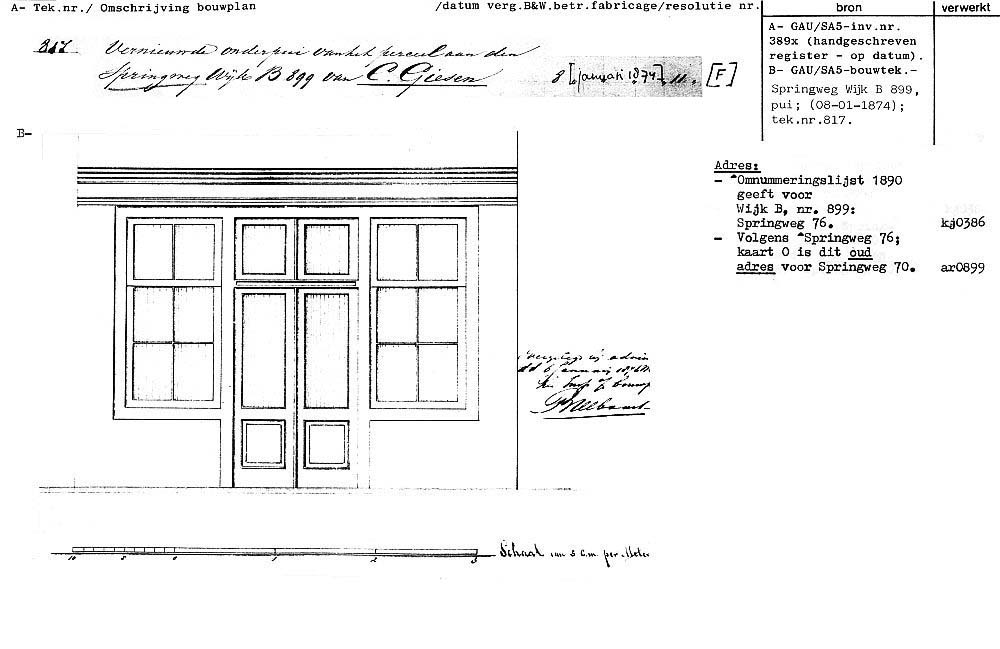 A- Tek.nr./ Omschrijving bouwplan /datum verg.B&W.betr.fabricage/resolutie nr. bron verwerkt
817. Vernieuwde onderpui van het perceel aan den
Springweg Wijk B 899 van C. Giesen 8 [januari 1874]. 11. [F]
A- GAU/SA5-inv.nr.
389x (handgeschreven
register - op datum).
B- GAU/SA5-bouwtek.-
Springweg Wijk B 899,
pui; (08-01-1874);
tek.nr.817.
B-
Adres:
- ^Omnummeringslijst 1890
geeft voor
Wijk B, nr. 899:
Springweg 76. kj0386
- Volgens ^Springweg 76;
kaart O is dit oud
adres voor Springweg 70. ar0899
advies
dd 6 Januarij
10 5 0 1 2 3
Schaal van 5 c.m. per Meter